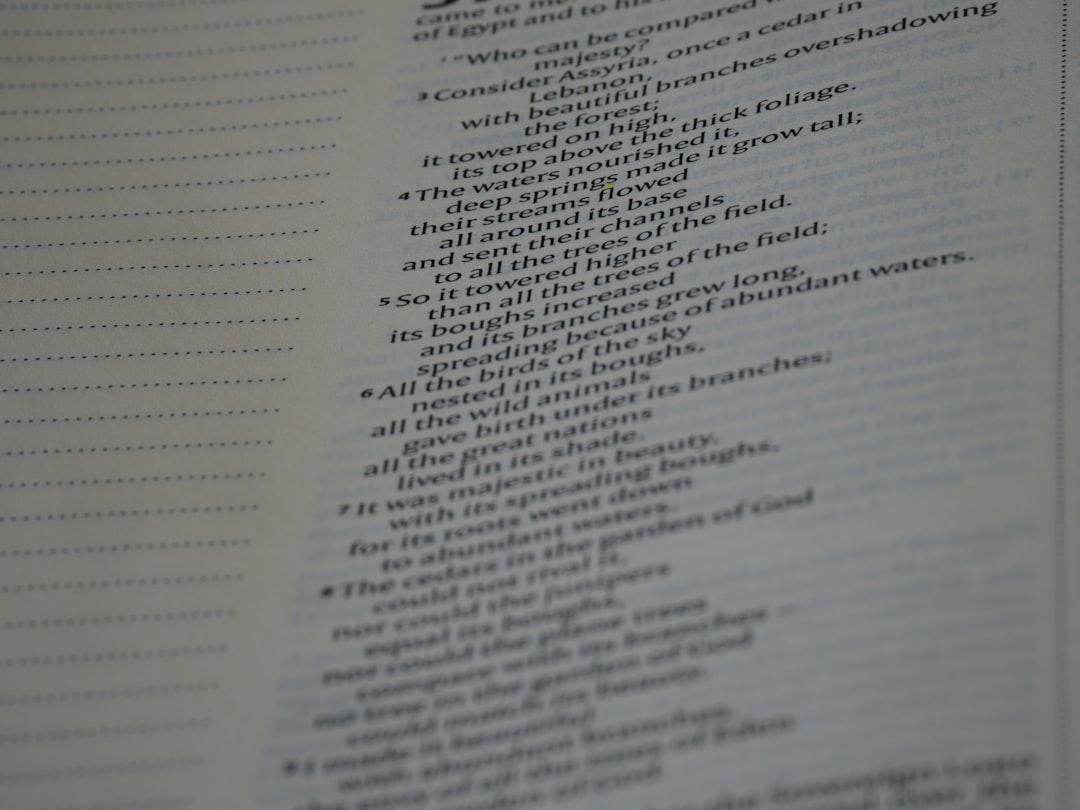 came to me:
of Egypt and to his
' "Who can be compared
majesty?
3 Consider Assyria, once a cedar in
Lebanon,
with beautiful branches overshadowing
the forest;
it towered on high,
its top above the thick foliage.
4 The waters nourished it,
deep springs made it grow tall;
their streams flowed
all around its base
and sent their channels
to all the trees of the field.
5 So it towered higher
than all the trees of the field;
its boughs increased
and its branches grew long,
spreading because of abundant waters.
6 All the birds of the sky
nested in its boughs,
all the wild animals
gave birth under its branches;
all the great nations
lived in its shade.
7 It was majestic in beauty,
with its spreading boughs,
for its roots went down
to abundant waters.
8 The cedars in the garden of God
could not rival it,
nor could the junipers
equal its boughs,
nor could the plane trees
compare with its branches —
no tree in the garden of God
could match its beauty.
9 I made it beautiful
with abundant branches,
the envy of all the trees of Eden